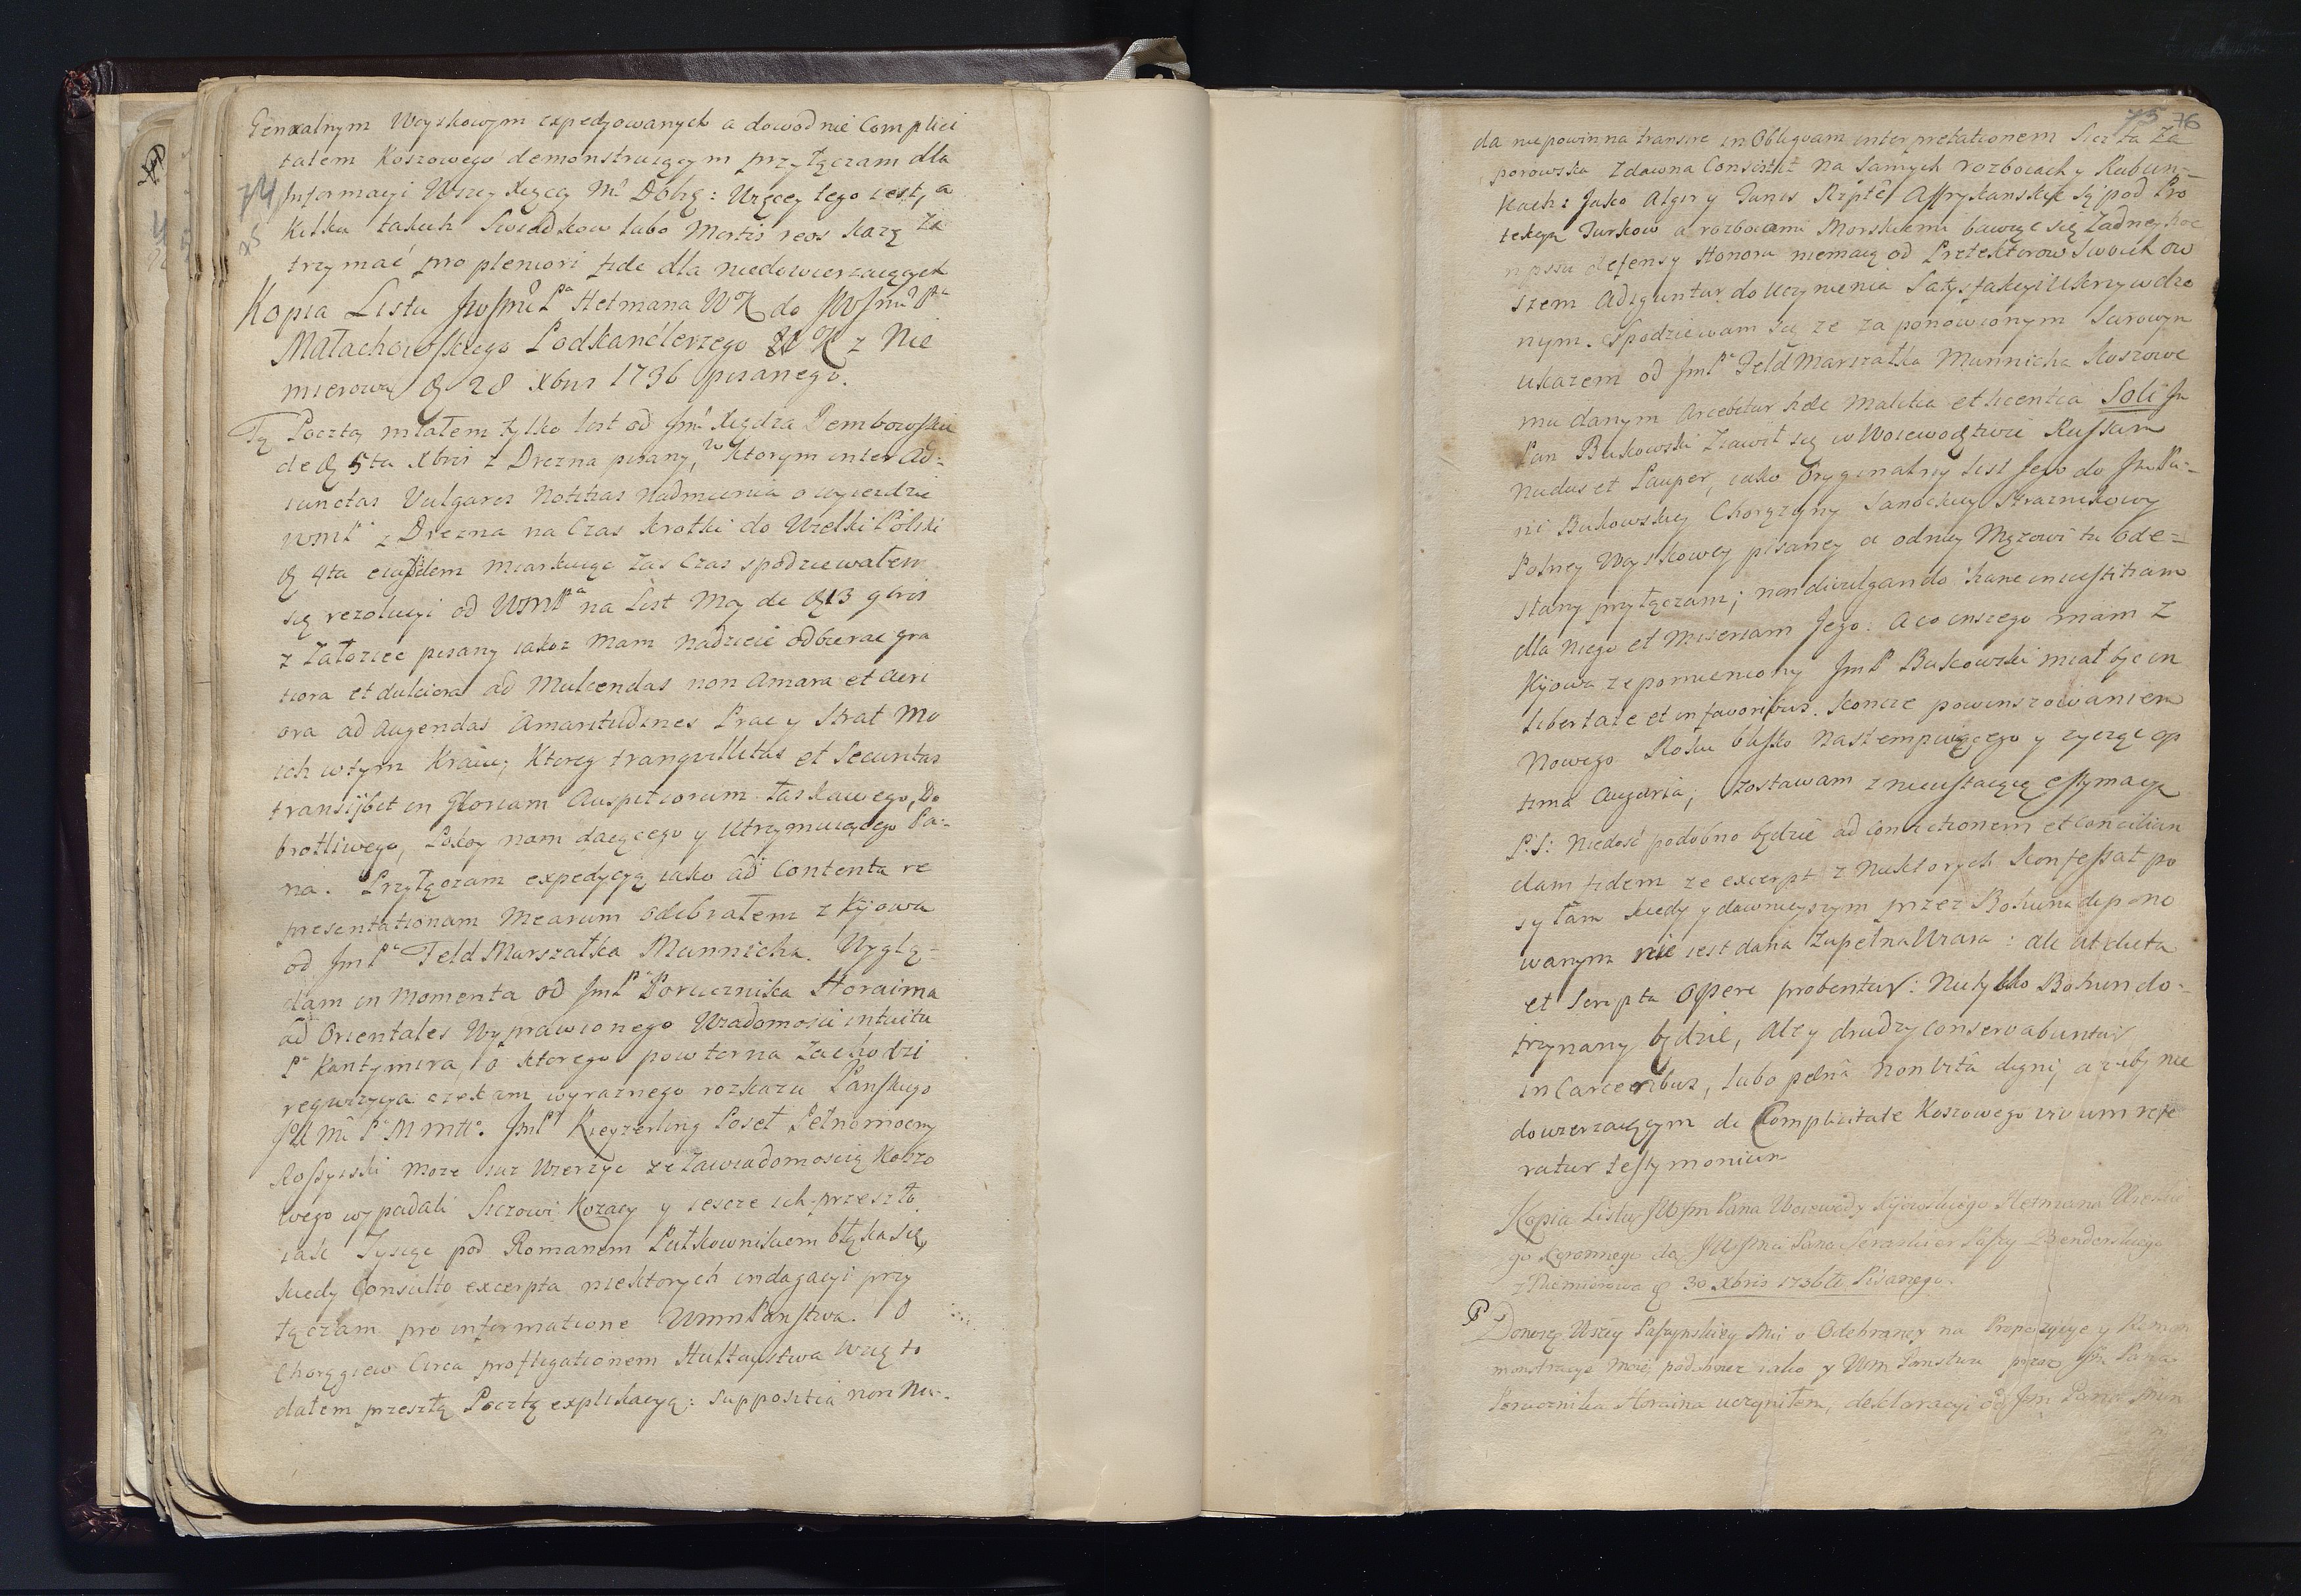 Genralnym Woyskowym expedyowanych a dowodnie Complici
tatem Koszowego demonstruiącym przyłączam dla
74 Informacyi Wszey Xięcey Mci Dobrę: Więcey tego iest, a
Kilku takich Swiadkow lubo Mortis reos każę za
trzymać pro pleniori fide dla niedowierzaiących
Kopia Listu JWJmci Pa Hetmana WK do JWJmci Pa
Małachowskiego Podkanclerzego K z Nie
mierowa 28 Xbris 1736 pisanego.
Tą Pocztą miałem tylko list od Jmci Xiędza Dembowskie
de 5ta Xbris z Drezna pisany, w ktorym inter Ad-
iunctas Vulgares Notitias nadmienia o wyiezdzie
WMP z Drezna na Czas krotki do Wielki Polski
4ta eiusdem miarkuiąc zas Czas spodziewałem
się rezolucyi od WMPa na List Moy de 13 9bris
z Załoziec pisany iakoz mam nadzieie odbierac gra
tiora et dulciora ad Mulcendas non Amara et aeri
ora ad augendas Amaritudines Prac y Strat Mo
ich w tym Kraiu, Ktorey tranquillitas et Securitas
transijbit in Gloriam Auspitiorum Łaskawego, Do
brotliwego, Pokoy nam daiącego y Utrzymuiącego Pa-
na. Przyłączam expedycyą iako ad Contenta re
presentationum mearum odebrałem z Kijowa
od JmPa Feld Marszałka Munnicha. Wyglą-
dam in momenta od JmPa Porucznika Horaima
ad Orientales Wyprawionego Wiadomości intuitu
Pa Kantymira, o ktorego powtorna zachodzi
rekwizycya czekam wyraznego rozkazu Panskiego
JWMci Pa Mmtt. JmP Kieyzerling Poseł Pełnomocny
Rossyiski moze iuz Wierzyc ze za wiadomoscią Koszo
wego wypadali Siczowi Kozacy y ieszcze ich przeszło
iak Tysiąc pod Romanem Pułkownikiem błąka się,
kiedy Consulto excerpta niektorych indagacyi przy
łączam pro informatione WmmPanstwa. O
Chorągiew Circa profligationem Hultaystwa Wzięto
dałem przeszłą Pocztą explikacyą: suppositia non Nu-
75 76
da niepowinna transire in Obliquam interpretationem Sicz ta Za
porowska zdawna Consistit na samych rozboiach y Rabun-
kach: Jako Algier y Tunis Rzptej Affrykanskie są pod Pro
tekcyą Turkow a rozboiami Morskiemi bawiąc się Żadney hoc
ipsu defensy Honoru niemaią od Protektorow Swoich ow
szem adiguntur do Uczynienia Satysfakcyi Ukrzywdzo
nym. Spodziewam się ze za ponowionym Surowym
ukazem od JmPa Feld Marszałka Munnicha Koszowe
mu danym Arcebitur hæc Malitia et licentia Soli Jm
Pan Bukowski Ziawił się w Woiewodztwie Ruskim
Nudus et Pauper, iako Oryginalny list Jego do JmPa-
ni Bukowskiey Chorązyny Sanockiey Straznikowy
Polney Woyskowey pisaney a od niey Męzowi tu ode-
słany przyłączam; non divulgando hanc iniustitiam
dla niego et Miseriam Jego: A co inszego mam z
Kijowa ze pomieniony JmP Bukowski miał byc in
libertate et in favoribus. Koncze powinszowaniem
Nowego Roku blisko nastempuiącego y zyczę op
tima auguria; zostawam z nieustaiącą estymacyą
P:S: Niedość podobno będzie ad convictionem et concilian
dam fidem ze excerpt z niektorych konfessat po
syłam kiedy y dawnieyszym przez Bohuna depono
wanym nie iest dana zupełna Wiara: ale ut dicta
et scripta Opere probentur: Nietylko Bohun do-
trzymany będzie, ale y drudzy conservabuntur
in Carceribus, lubo pelna non vitâ digni; azeby nie
dowierzaiącym de Complicitate Koszowego vivum refe
ratur testymonium
Kopia Listu JWJm Pana Woiewody Kijowskiego Hetmana Wielkie
go Koronnego do JWJmci Pana Seraskier Paszy Benderskiego
z Niemirowa 30 Xbris 1736to Pisanego.
Donoszę Wszey Paszynskiey Mci o Odebraney na Propozycye y Remon
monstracye moie, podobniez iako y Wm Panstwu przez Jm Pana
Porucznika Horaina uczyniłem, deklaracyi od Jm Pana Mun